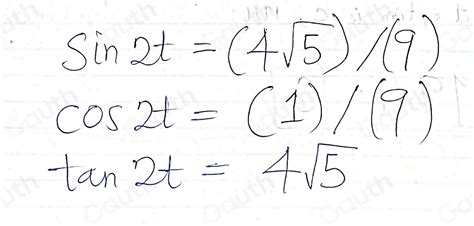 sin 2t = (4√5)/(9)
cos 2t = (1)/(9)
tan 2t = 4√5